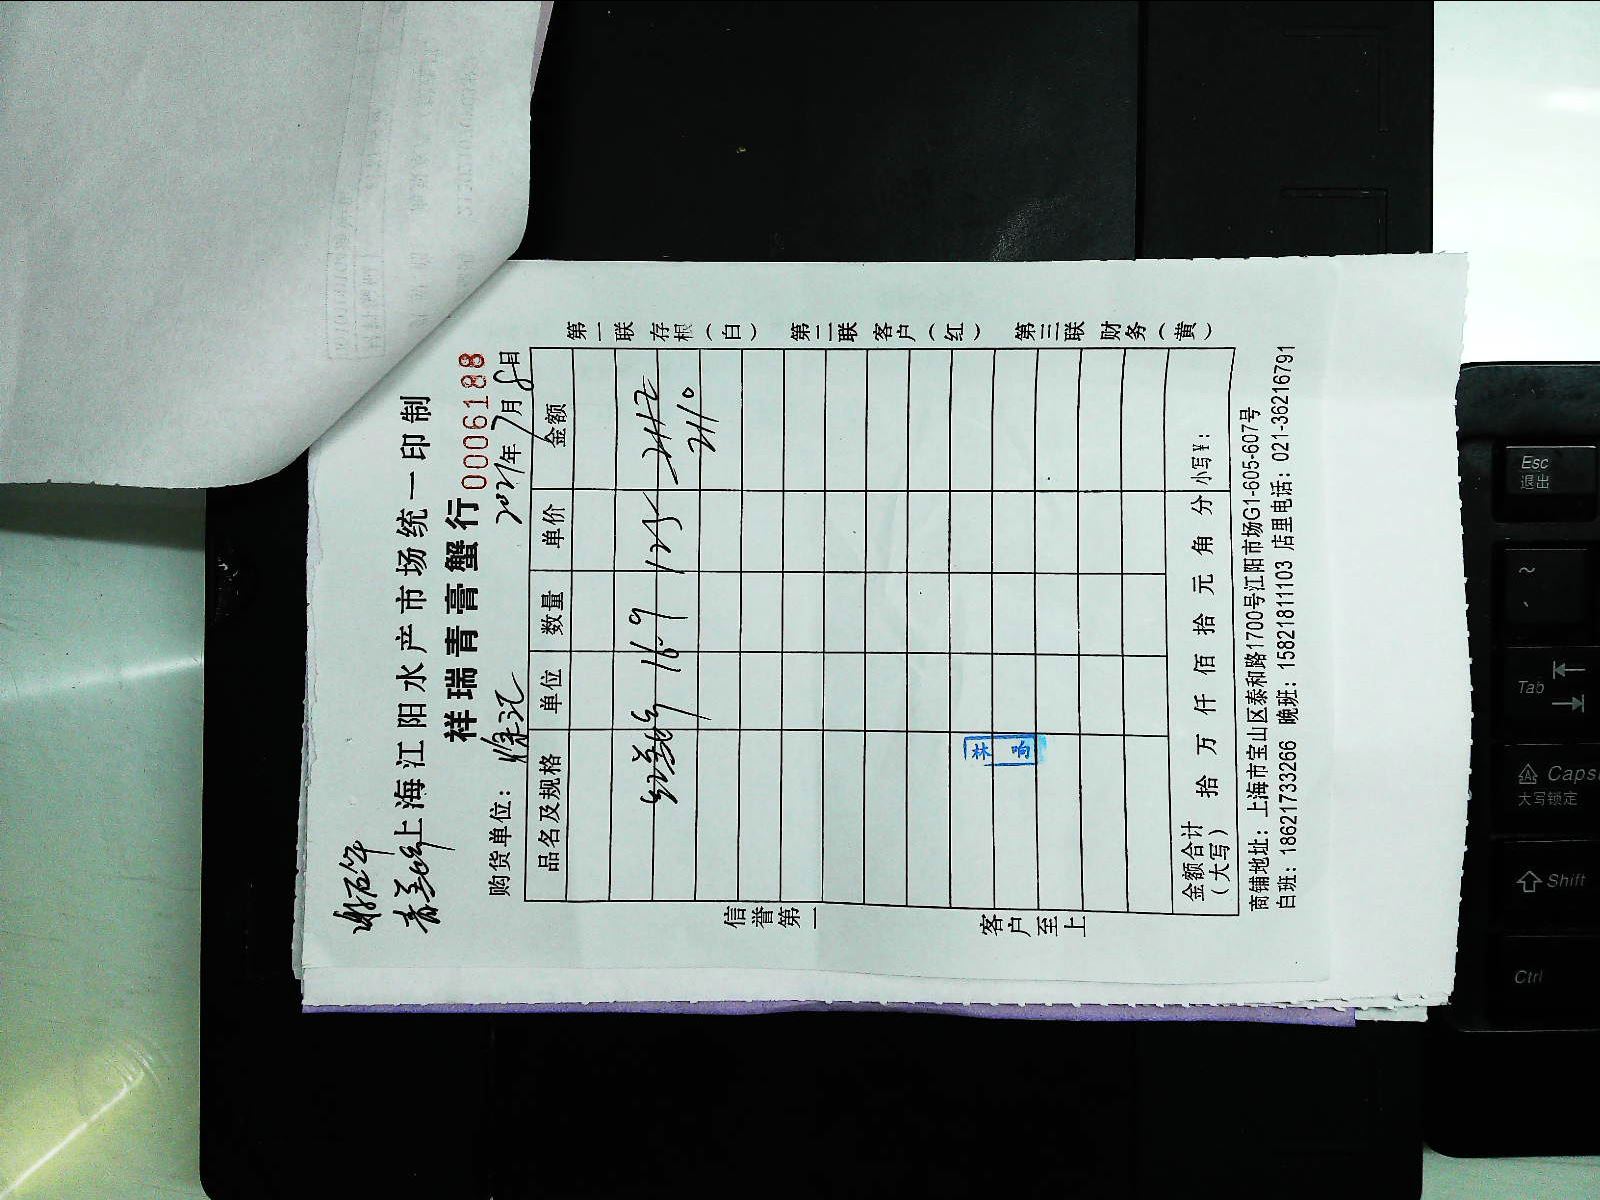 上海江阳水产市场统一印制
祥瑞青膏蟹行
0006188
购货单位：徐记
2021年7月8日
品名及规格 单位 数量 单价 金额
16.9 125 2112
2110
金额合计（大写） 拾 万 仟 佰 拾 元 角 分 小写¥：
商铺地址：上海市宝山区泰和路1700号江阳市场G1-605-607号
白班：18621733266 晚班：15821811103 店里电话：021-36216791
信誉第一
客户至上
第一联存根（白）
第二联客户（红）
第三联财务（黄）
Esc
退出
~
Tab
Caps
大写锁定
Shift
Ctrl